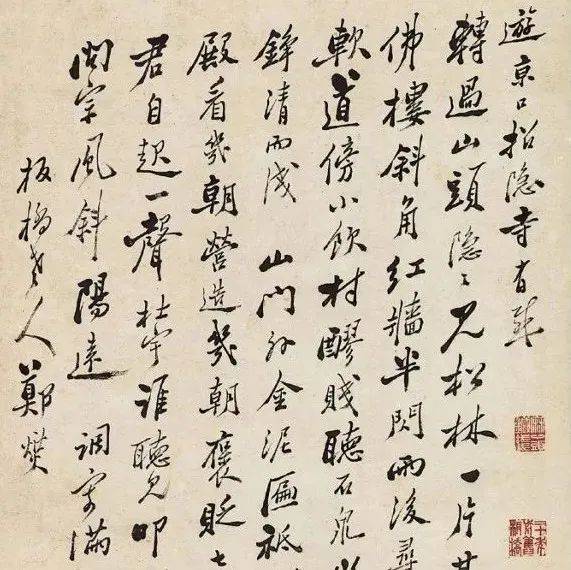 遊京口招隐寺有
轉過山頭隐〻見松林一片其
佛樓斜角紅牆半閃雨後尋
軟道傍小飲村醪賤聽石泉
錚清而淺 山門外金泥匾祗
殿看幾朝營造幾朝褒貶七
君自起一聲杜宇誰聽見叩
問宗風斜陽遠 調寄滿
板橋老人鄭燮